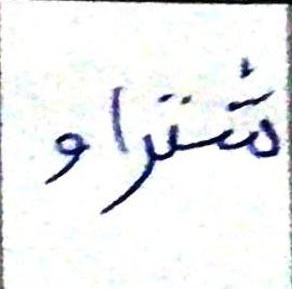 شتراو